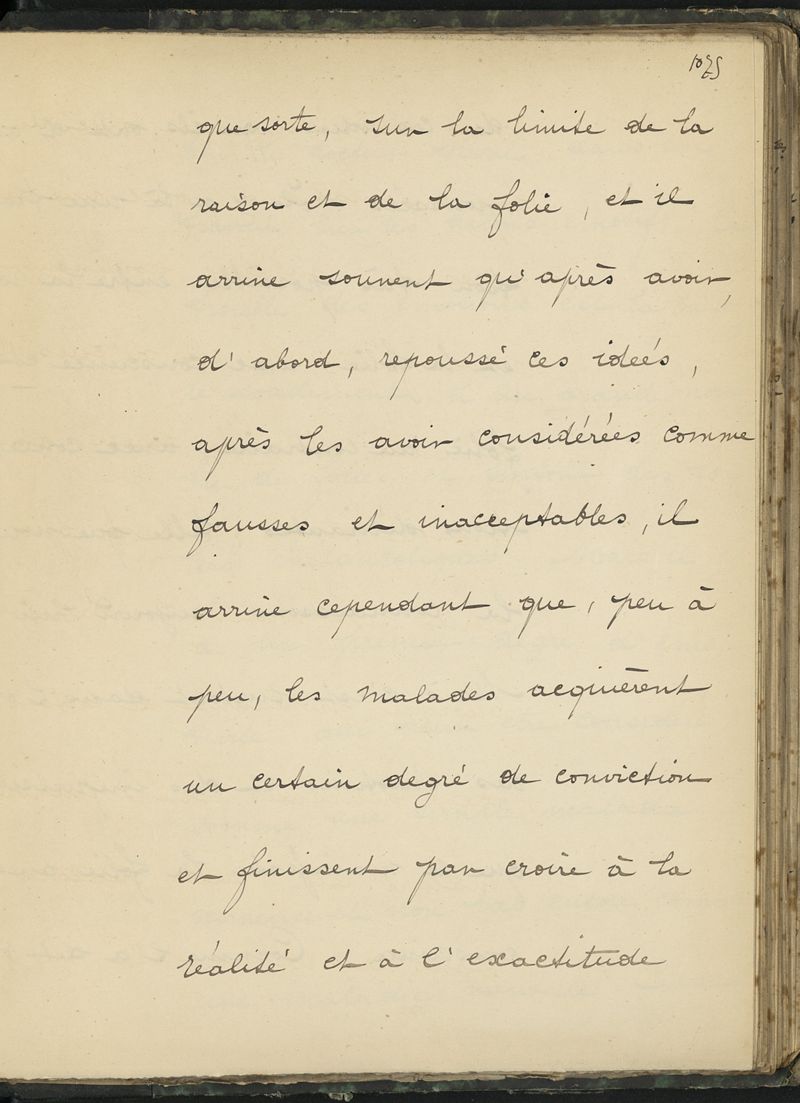 1075
que sorte, sur la limite de la
raison et de la folie, et il
arrive souvent qu'après avoir,
d'abord, repoussé ces ideés,
après les avoir considérées comme
fausses et inacceptables, il
arrive cependant que, peu à
peu, les malades acquièrent
un certain degré de conviction
et finissent par croire à la
réalité et à l'exactitude